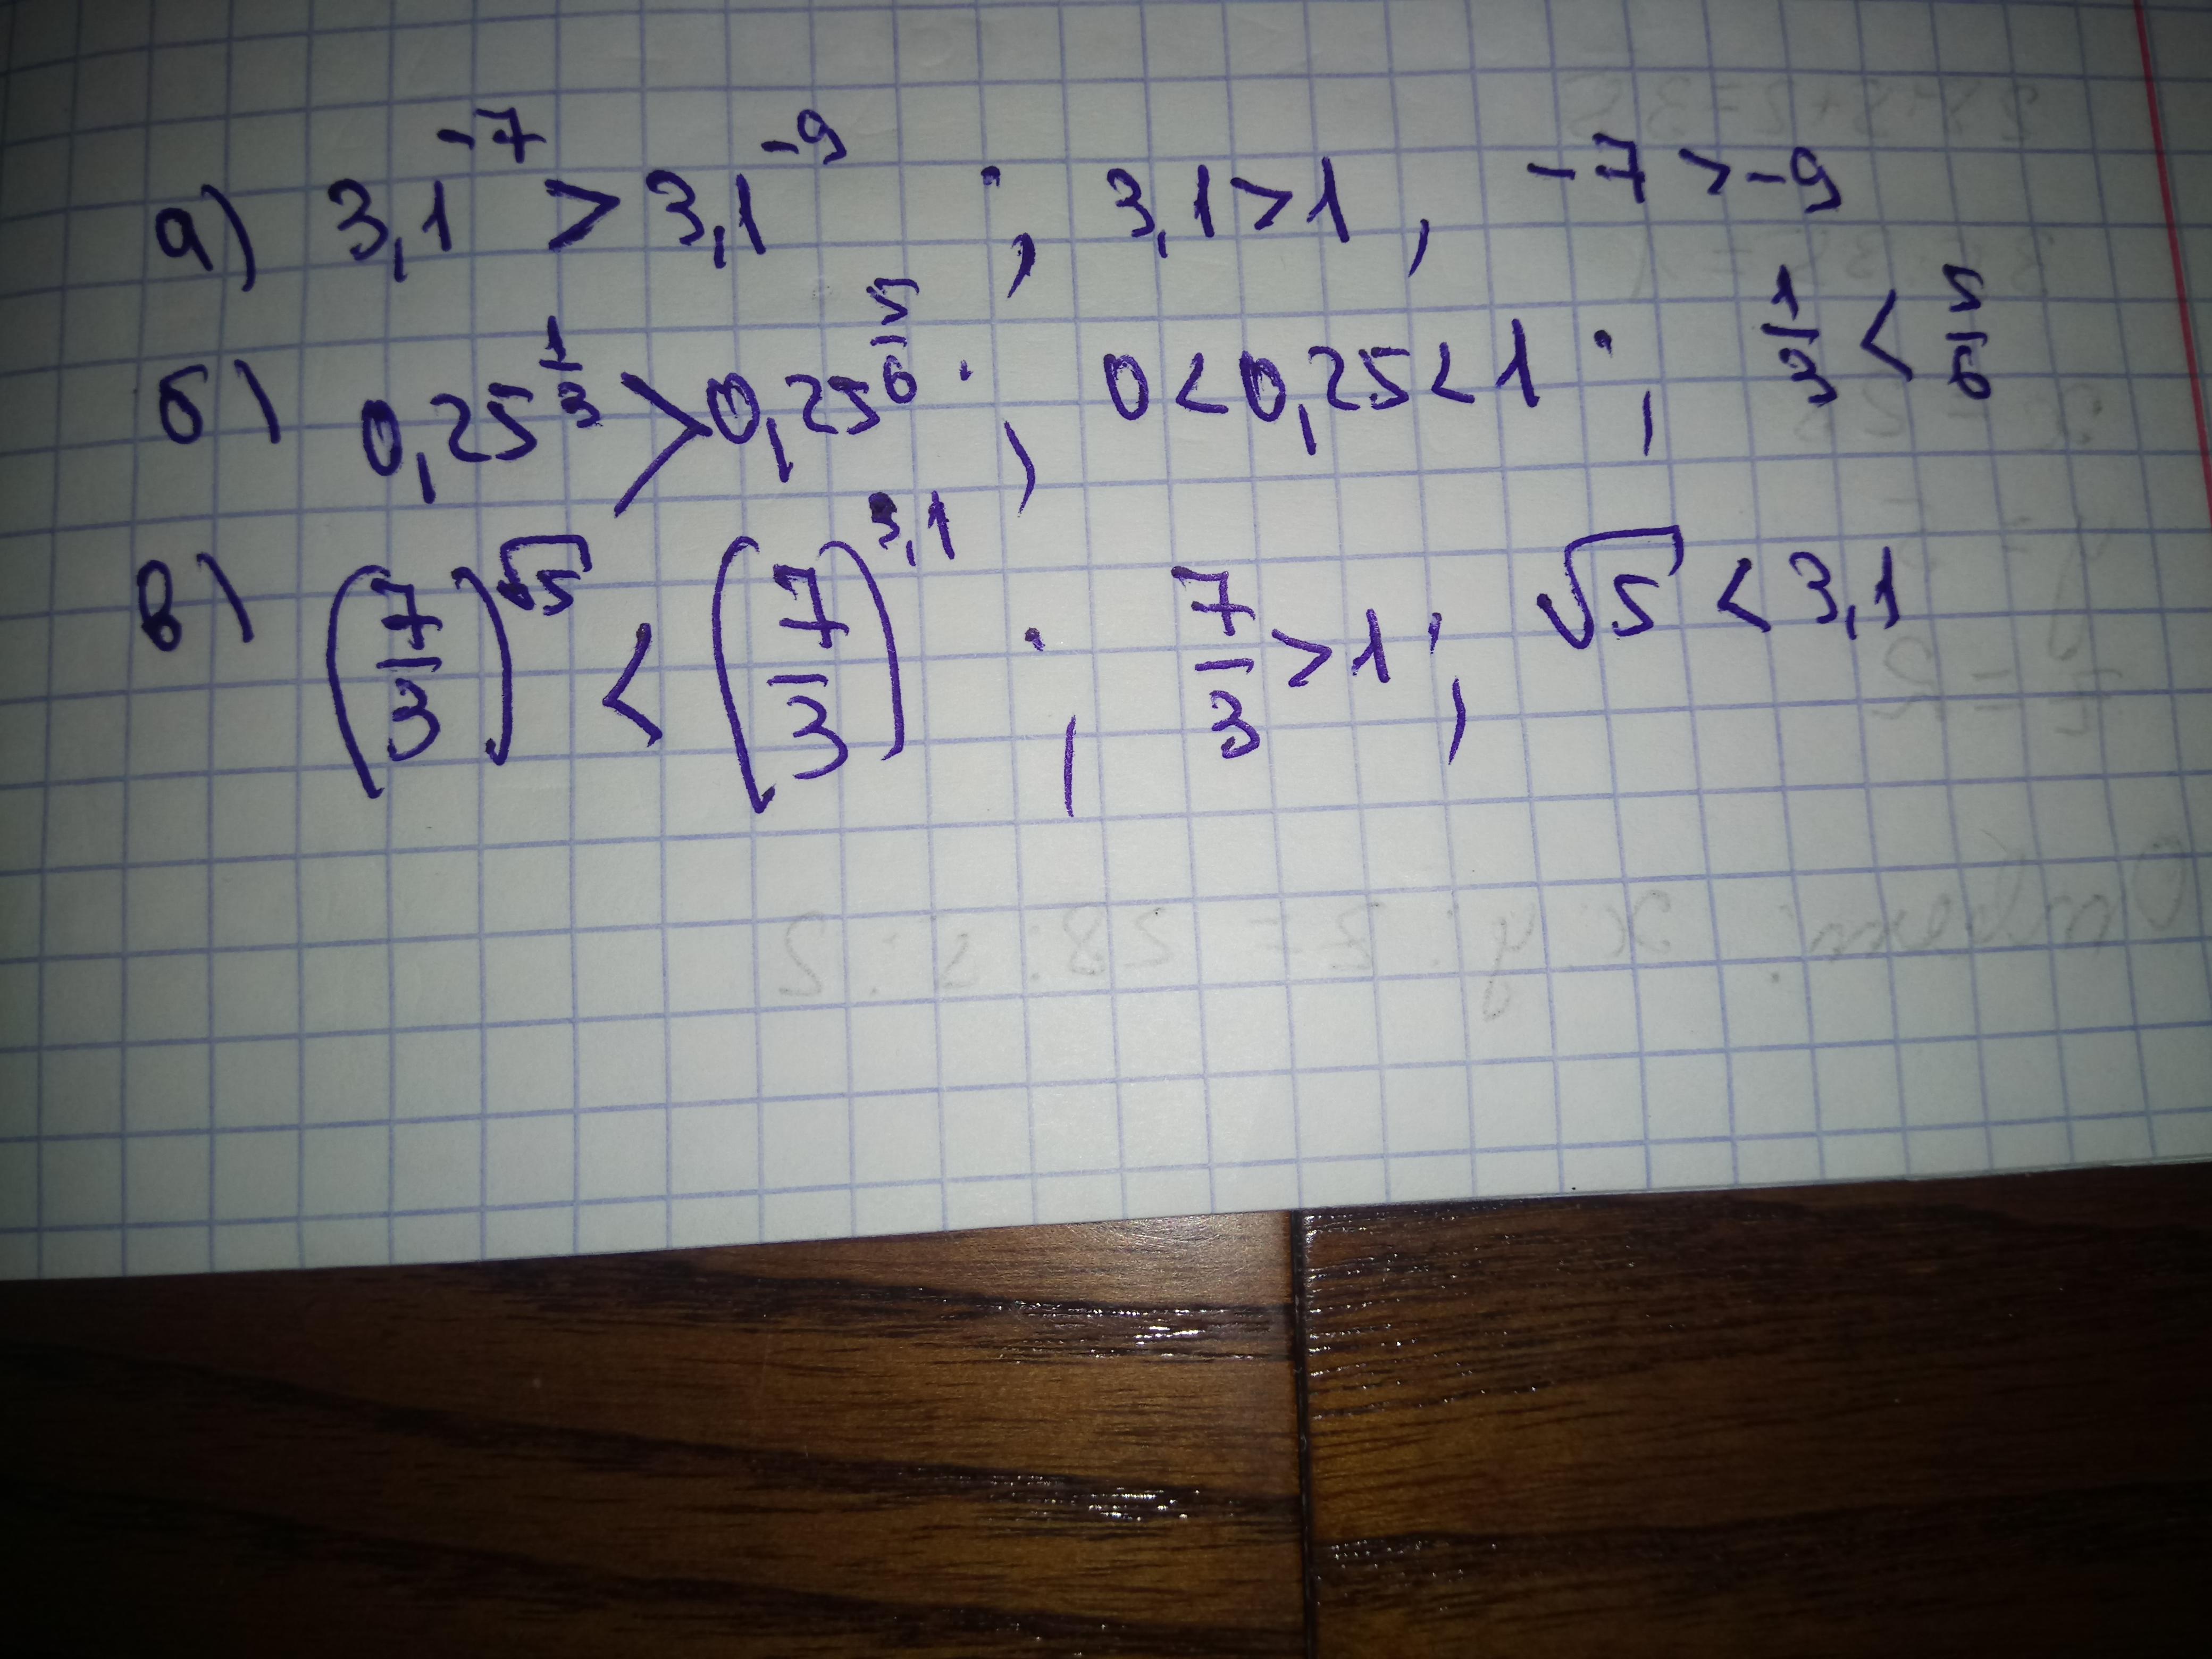 а) 3,1^-7 > 3,1^-9 ; 3,1>1, -7 > -9
б) 0,25^1/3 > 0,25^5/6 ; 0<0,25<1 ; 1/3 < 5/6
в) (7/3)^√5 < (7/3)^3,1 ; 7/3 > 1 ; √5 < 3,1